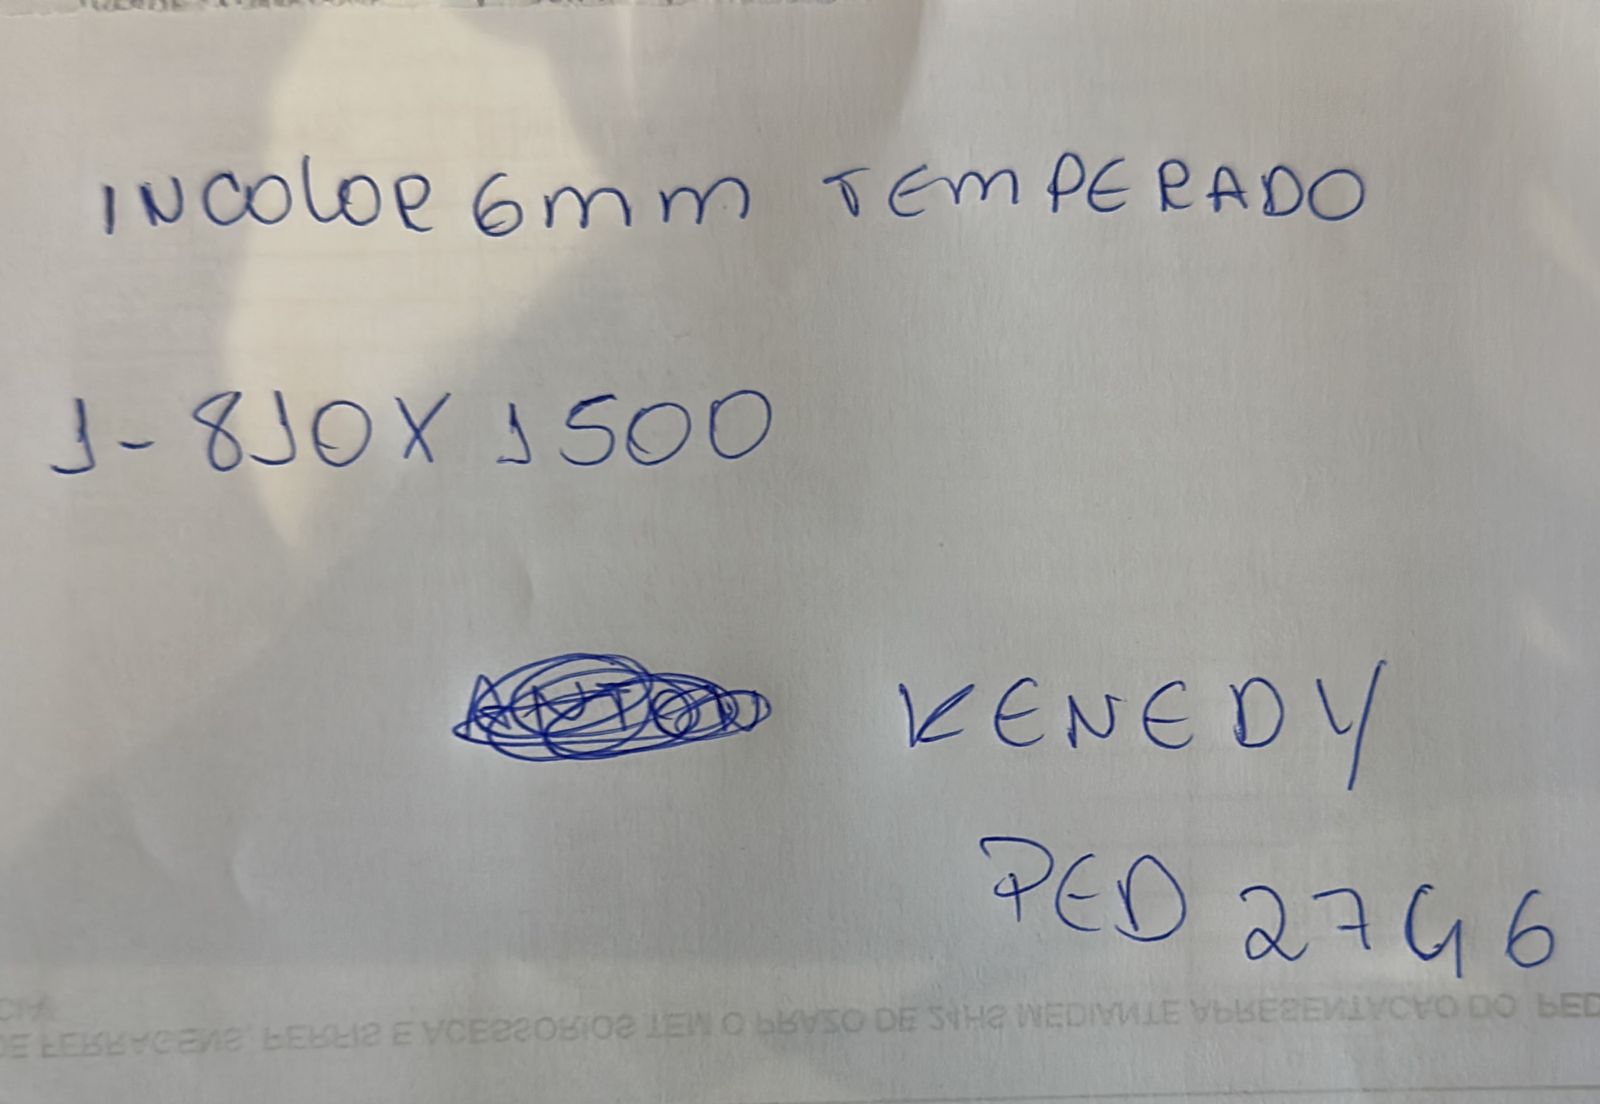 INCOLOR 6mm TEMPERADO
1-810X1500
KENEDY
PED 2746
DE FERRAGENS, PERFIS E ACESSORIOS TEM O PRAZO DE 24HS MEDIANTE APRESENTACAO DO PED